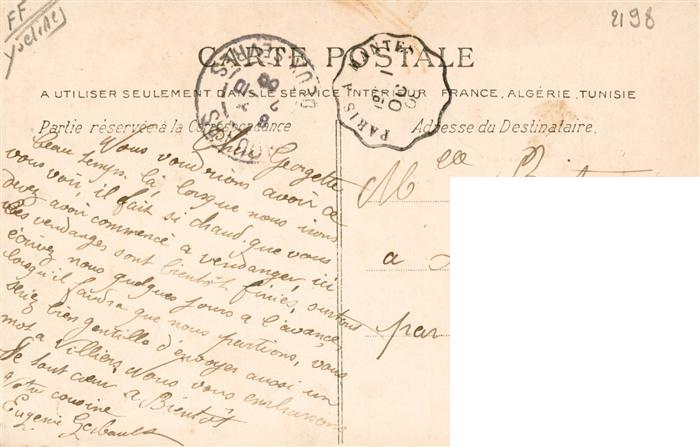 FF
Yvelines
2198
CARTE POSTALE
A UTILISER SEULEMENT DANS LE SERVICE INTÉRIEUR FRANCE, ALGÉRIE, TUNISIE
PARIS A MANTES
Partie réservée à la Correspondance
Adresse du Destinataire.
Chère Georgette
Nous voudrions avoir ce
beau temps là lorsque nous irons
vous voir, il fait si chaud que vous
devez avoir commencé a vendanger, ici
les vendanges sont bientôt finies, surtout
écrivez nous quelques jours a l'avance
lorsqu'il faudra que nous partions, vous
seriez bien gentille d'envoyer aussi un
mot a Villiers. Nous vous embrassons
de tout cœur a Bientôt
votre cousine
Eugénie
Melle
a
par